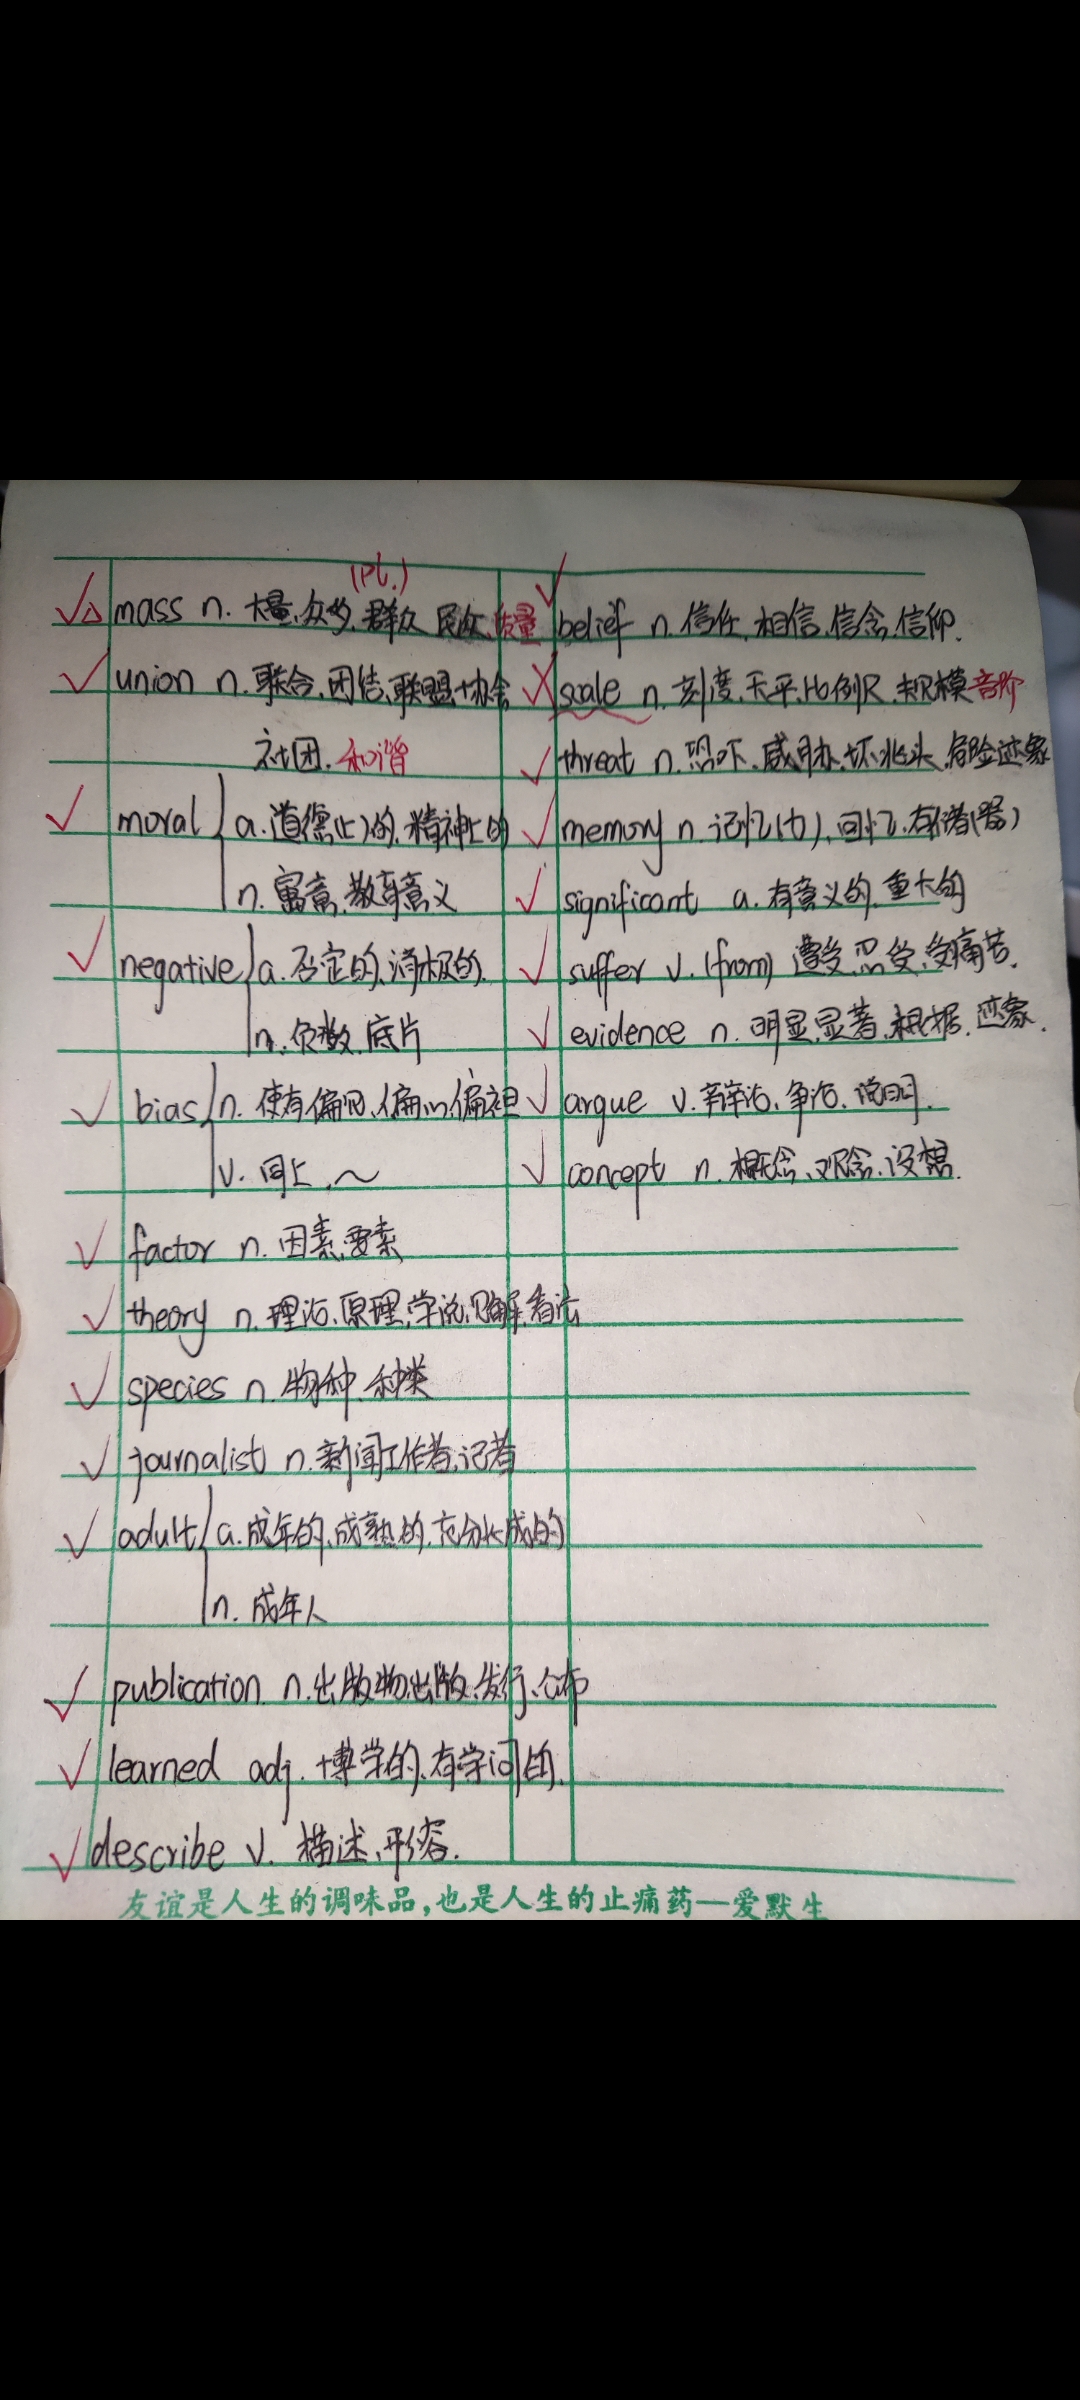 (pl.)
mass n. 大量、众多、群众 民众、质量
union n. 联合、团结、联盟、协会
社团、和谐
moral a. 道德(上)的、精神上的
n. 寓意、教育意义
negative a. 否定的、消极的.
n. 负数、底片
bias n. 使有偏见、偏心、偏袒
v. 同上、~
factor n. 因素、要素
theory n. 理论、原理、学说、见解、看法
species n. 物种、种类
journalist n. 新闻工作者、记者
adult a. 成年的、成熟的、充分长成的
n. 成年人
publication n. 出版物、出版、发行、公布
learned adj. 博学的、有学问的.
describe v. 描述、形容.
belief n. 信任、相信、信念、信仰.
scale n. 刻度、天平、比例尺、规模 音阶
threat n. 恐吓、威胁、坏兆头、危险迹象
memory n. 记忆(力)、回忆、存储(器)
significant a. 有意义的、重大的
suffer v. (from) 遭受、忍受、受痛苦.
evidence n. 明显、显著、根据、迹象.
argue v. 辩论、争论、说明.
concept n. 概念、观念、设想.
友谊是人生的调味品,也是人生的止痛药—爱默生